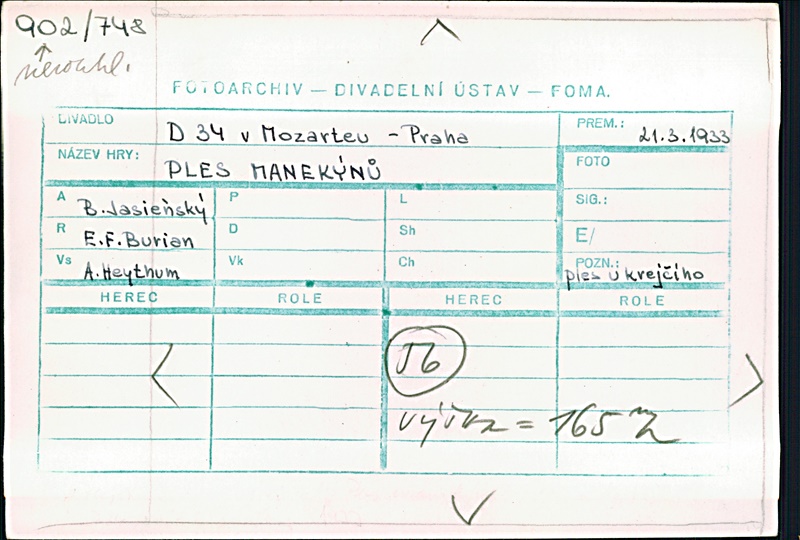 902/748
FOTOARCHIV — DIVADELNÍ ÚSTAV — FOMA.
DIVADLO D 34 v Mozarteu - Praha PREM.: 21.3.1933
NÁZEV HRY: PLES MANEKÝNŮ FOTO
A B. Jasieňský P L SIG.:
R E.F. Burian D Sh E/
Vs A. Heythum Vk Ch POZN.: ples u krejčího
HEREC ROLE HEREC ROLE
výška = 165